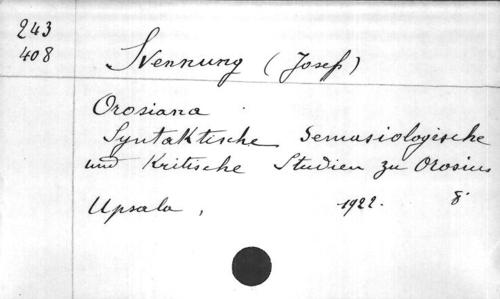 243
408
Svennung (Josef)
Orosiana
Syntaktische Semasiologische
und Kritische Studien zu Orosius
Upsala, 1922. 8°